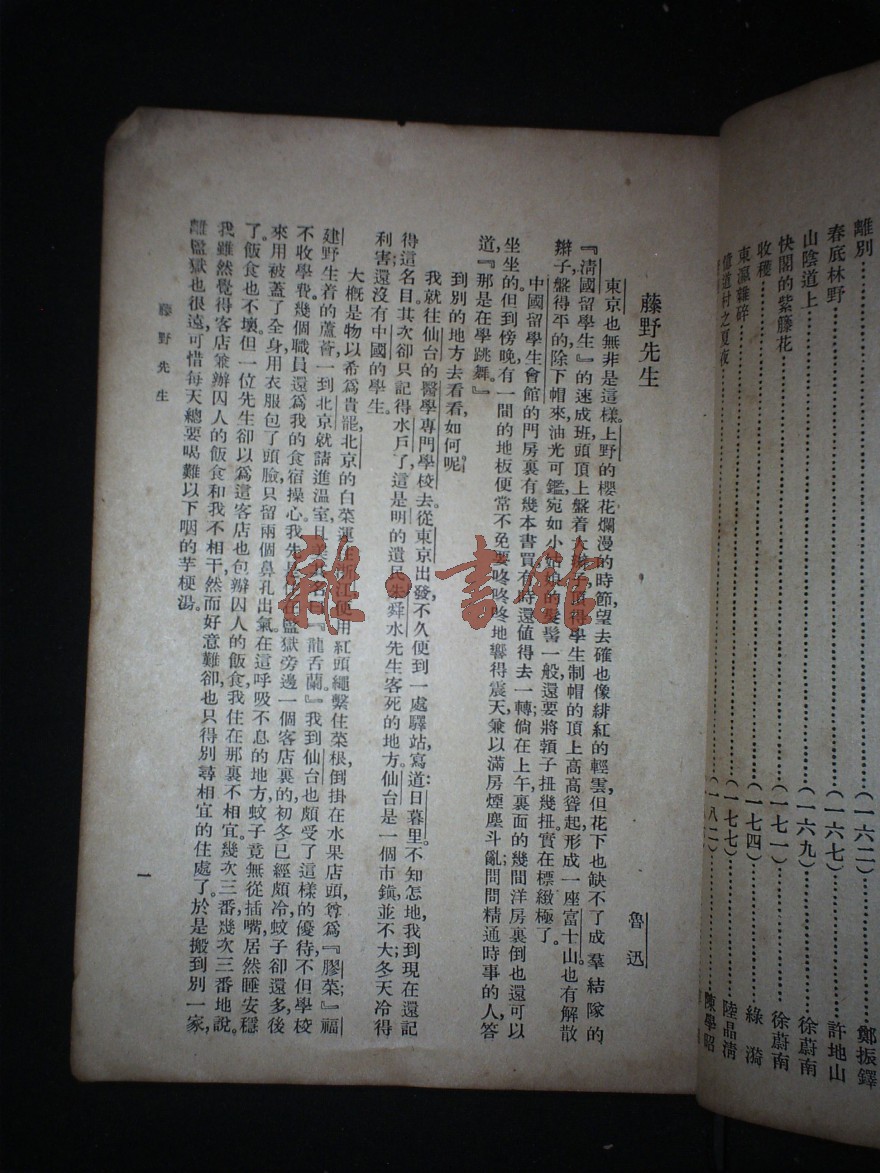 離別……(一六二)……鄭振鐸
春底林野……(一六七)……許地山
山陰道上……(一六九)……徐蔚南
快閣的紫籐花……(一七一)……徐蔚南
收穫……(一七四)……綠漪
東瀛雜碎……(一七七)……陸晶清
道村之夏夜……(一八二)……陳學昭
藤野先生
魯迅
東京也無非是這樣。上野的櫻花爛漫的時節，望去確也像緋紅的輕雲，但花下也缺不了成羣結隊的
『淸國留學生』的速成班，頭頂上盤着大辮子，頂得學生制帽的頂上高高聳起，形成一座富士山。也有解散
辮子，盤得平的，除下帽來，油光可鑑，宛如小姑娘的髮髻一般，還要將頸子扭幾扭。實在標緻極了。
中國留學生會館的門房裏有幾本書買，有時還值得去一轉；倘在上午，裏面的幾間洋房裏倒也還可以
坐坐的。但到傍晚，有一間的地板便常不免要咚咚咚地響得震天，兼以滿房煙塵斗亂；問問精通時事的人，答
道，『那是在學跳舞。』
到別的地方去看看，如何呢？
我就往仙台的醫學專門學校去。從東京出發，不久便到一處驛站，寫道：日暮里。不知怎地，我到現在還記
得這名目。其次卻只記得水戶了，這是明的遺民朱舜水先生客死的地方。仙台是一個市鎭，並不大；冬天冷得
利害；還沒有中國的學生。
大槪是物以希爲貴罷。北京的白菜運往浙江，便用紅頭繩繫住菜根，倒掛在水果店頭，尊爲『膠菜』；福
建野生着的蘆薈，一到北京就請進温室，且美其名曰『龍舌蘭』。我到仙台也頗受了這樣的優待，不但學校
不收學費，幾個職員還爲我的食宿操心。我先是住在監獄旁邊一個客店裏的，初冬已經頗冷，蚊子卻還多，後
來用被蓋了全身，用衣服包了頭臉，只留兩個鼻孔出氣。在這呼吸不息的地方，蚊子竟無從插嘴，居然睡安穩
了。飯食也不壞。但一位先生卻以爲這客店也包辦囚人的飯食，我住在那裏不相宜，幾次三番，幾次三番地說。
我雖然覺得客店兼辦囚人的飯食和我不相干，然而好意難卻，也只得別尋相宜的住處了。於是搬到別一家，
離監獄也很遠，可惜每天總要喝難以下咽的芋梗湯。
藤野先生
一
雜·書館